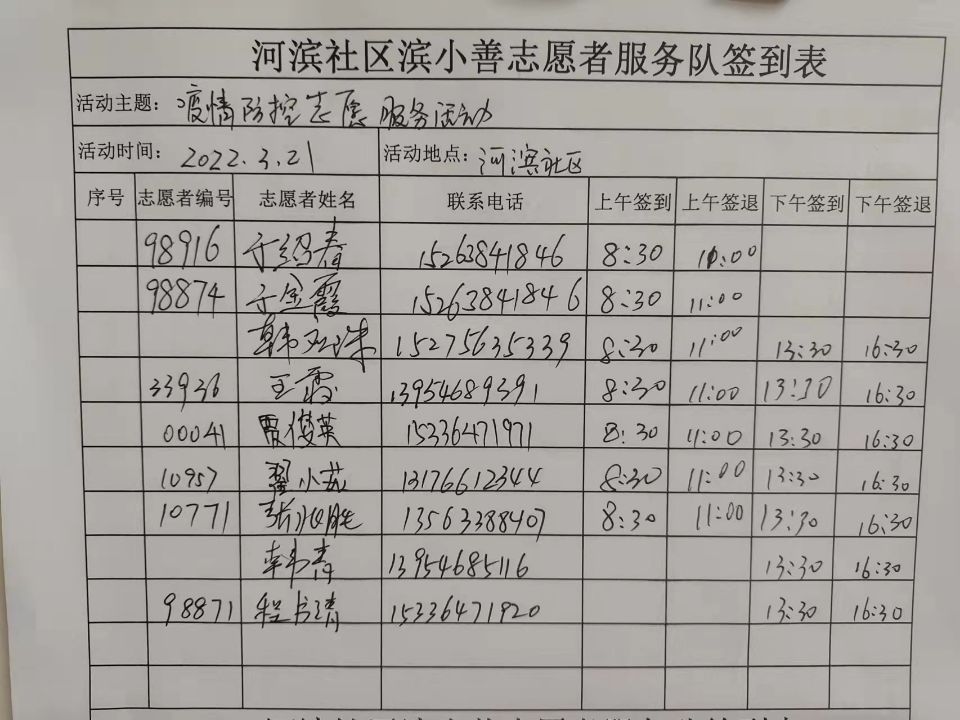 河滨社区滨小善志愿者服务队签到表
活动主题: 疫情防控志愿服务活动
活动时间: 2022.3.21 活动地点: 河滨社区
序号 志愿者编号 志愿者姓名 联系电话 上午签到 上午签退 下午签到 下午签退
98916 于绍春 15263841846 8:30 11:00
98874 于金霞 15263841846 8:30 11:00
韩 15275635339 8:30 11:00 13:30 16:30
33936 王霞 13954689391 8:30 11:00 13:30 16:30
00041 贾俊英 15336471971 8:30 11:00 13:30 16:30
10957 翟小花 13176612344 8:30 11:00 13:30 16:30
10771 张 胜 13563388407 8:30 11:00 13:30 16:30
韩青 13954685116 13:30 16:30
98871 程书清 15336471920 13:30 16:30